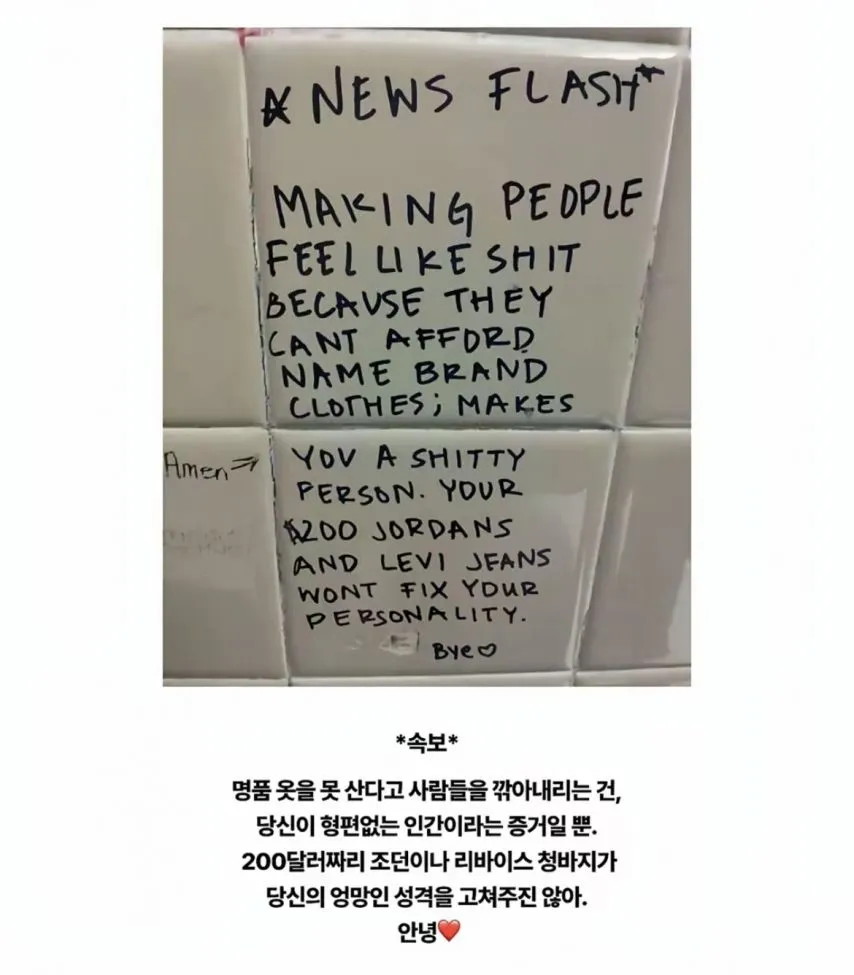 *NEWS FLASH*
MAKING PEOPLE
FEEL LIKE SHIT
BECAUSE THEY
CANT AFFORD
NAME BRAND
CLOTHES; MAKES
YOU A SHITTY
PERSON. YOUR
$200 JORDANS
AND LEVI JEANS
WONT FIX YOUR
PERSONALITY.
Bye♡
Amen⇒
*속보*
명품 옷을 못 산다고 사람들을 깎아내리는 건,
당신이 형편없는 인간이라는 증거일 뿐.
200달러짜리 조던이나 리바이스 청바지가
당신의 엉망인 성격을 고쳐주진 않아.
안녕❤️